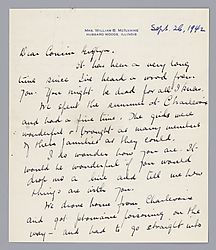 MRS. WILLIAM B. McILVAINE
HUBBARD WOODS, ILLINOIS
Sept. 26, 1942
Dear Cousin
It has been a very long
time since I've heard a word from
you. You might be dead for all I know.
We spent the summer at Charlevoix
and had a fine time. The girls were
wonderful & brought as many members
of their families as they could.
I do wonder how you are. It
would be wonderful if you would
drop me a line and tell me how
things are with you.
We drove home from Charlevoix
and got ptomaine poisoning on the
way - and had to go straight into